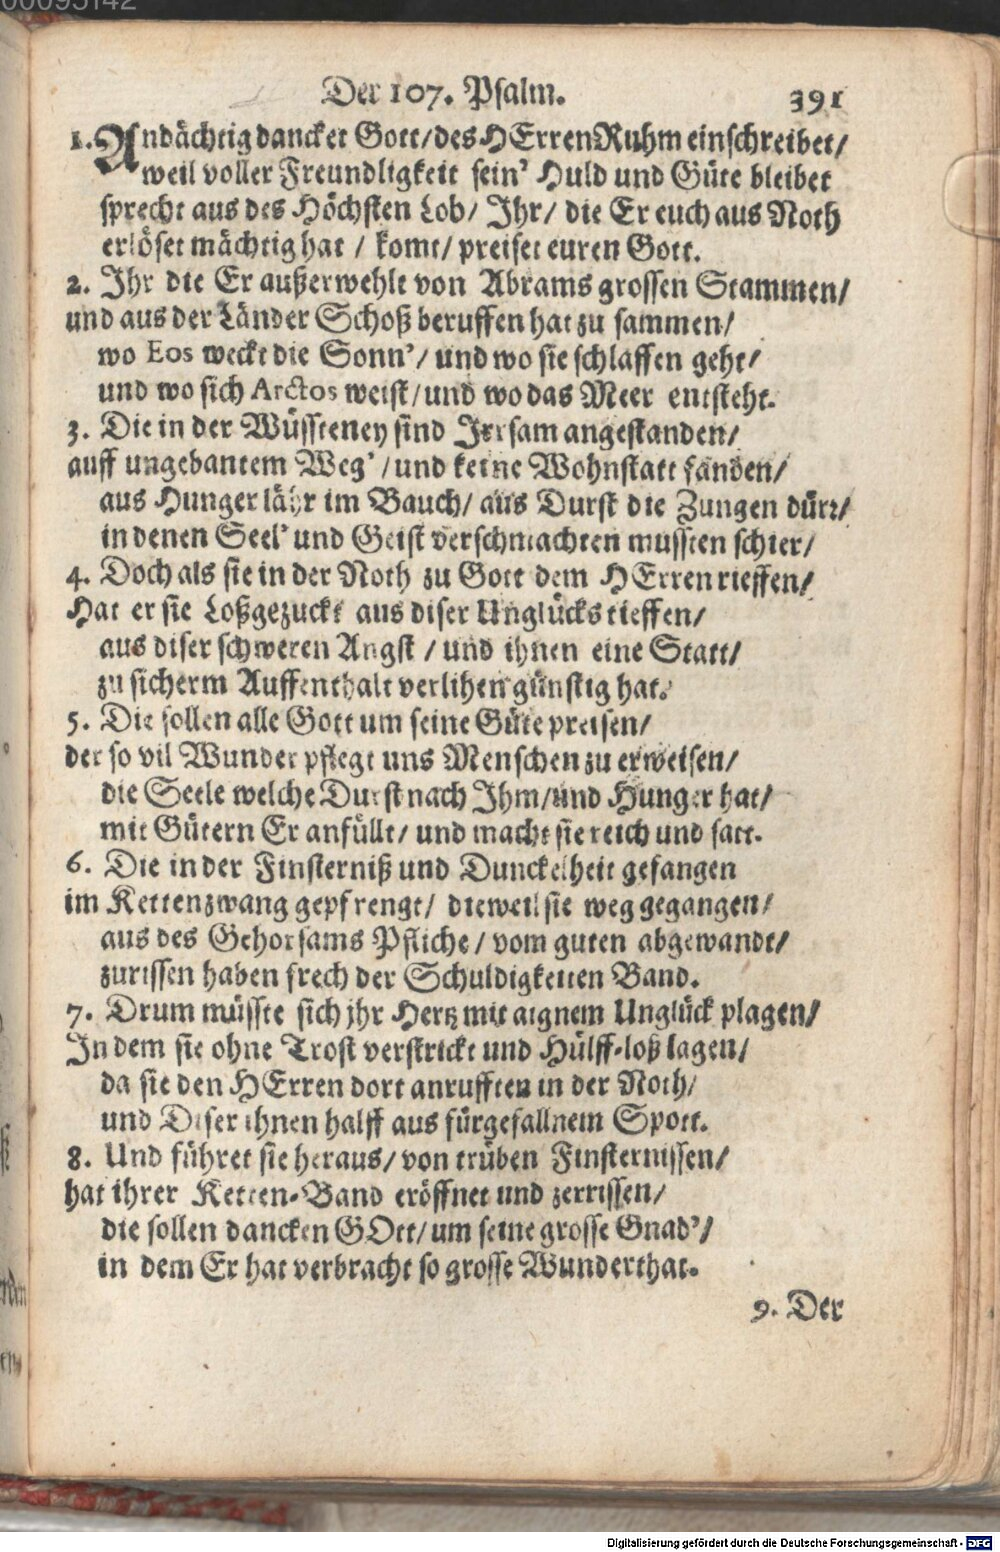 00095142
Der 107. Psalm. 391
1. Andächtig dancket Gott/ des HErren Ruhm einschreibet/
weil voller Freundligkeit sein' Huld und Güte bleibet
sprecht aus des Höchsten Lob/ Ihr/ die Er euch aus Noth
erlöset mächtig hat / komt/ preiset euren Gott.
2. Ihr die Er außerwehlt von Abrams grossen Stammen/
und aus der Länder Schoß beruffen hat zu sammen/
wo Eos weckt die Sonn'/ und wo sie schlaffen geht/
und wo sich Arctos weist/ und wo das Meer entsteht.
3. Die in der Wüsteney sind Irrsam angestanden/
auff ungebantem Weg'/ und keine Wohnstatt fanden/
aus Hunger lähr im Bauch/ aus Durst die Zungen dürr/
in denen Seel' und Geist verschmachten mussten schier/
4. Doch als sie in der Noth zu Gott dem HErren rieffen/
Hat er sie Loßgezuckt aus diser Unglücks tieffen/
aus diser schweren Angst / und ihnen eine Statt/
zu sicherm Auffenthalt verlihen günstig hat.
5. Die sollen alle Gott um seine Güte preisen/
der so vil Wunder pflegt uns Menschen zu erweisen/
die Seele welche Durst nach Ihm/ und Hunger hat/
mit Gütern Er anfüllt/ und macht sie reich und satt.
6. Die in der Finsterniß und Dunckelheit gefangen
im Kettenzwang gepfrengt/ dieweil sie weg gegangen/
aus des Gehorsams Pfliche/ vom guten abgewandt/
zurissen haben frech der Schuldigkeiten Band.
7. Drum müsste sich jhr Hertz mit aignem Unglück plagen/
In dem sie ohne Trost verstrickt und Hülff-loß lagen/
da sie den HErren dort anrufften in der Noth/
und Diser ihnen halff aus fürgefallnem Spott.
8. Und führet sie heraus/ von trüben Finsternissen/
hat ihrer Ketten-Band eröffnet und zerrissen/
die sollen dancken GOtt/ um seine grosse Gnad'/
in dem Er hat verbracht so grosse Wunderthat.
9. Der
Digitalisierung gefördert durch die Deutsche Forschungsgemeinschaft - DFG